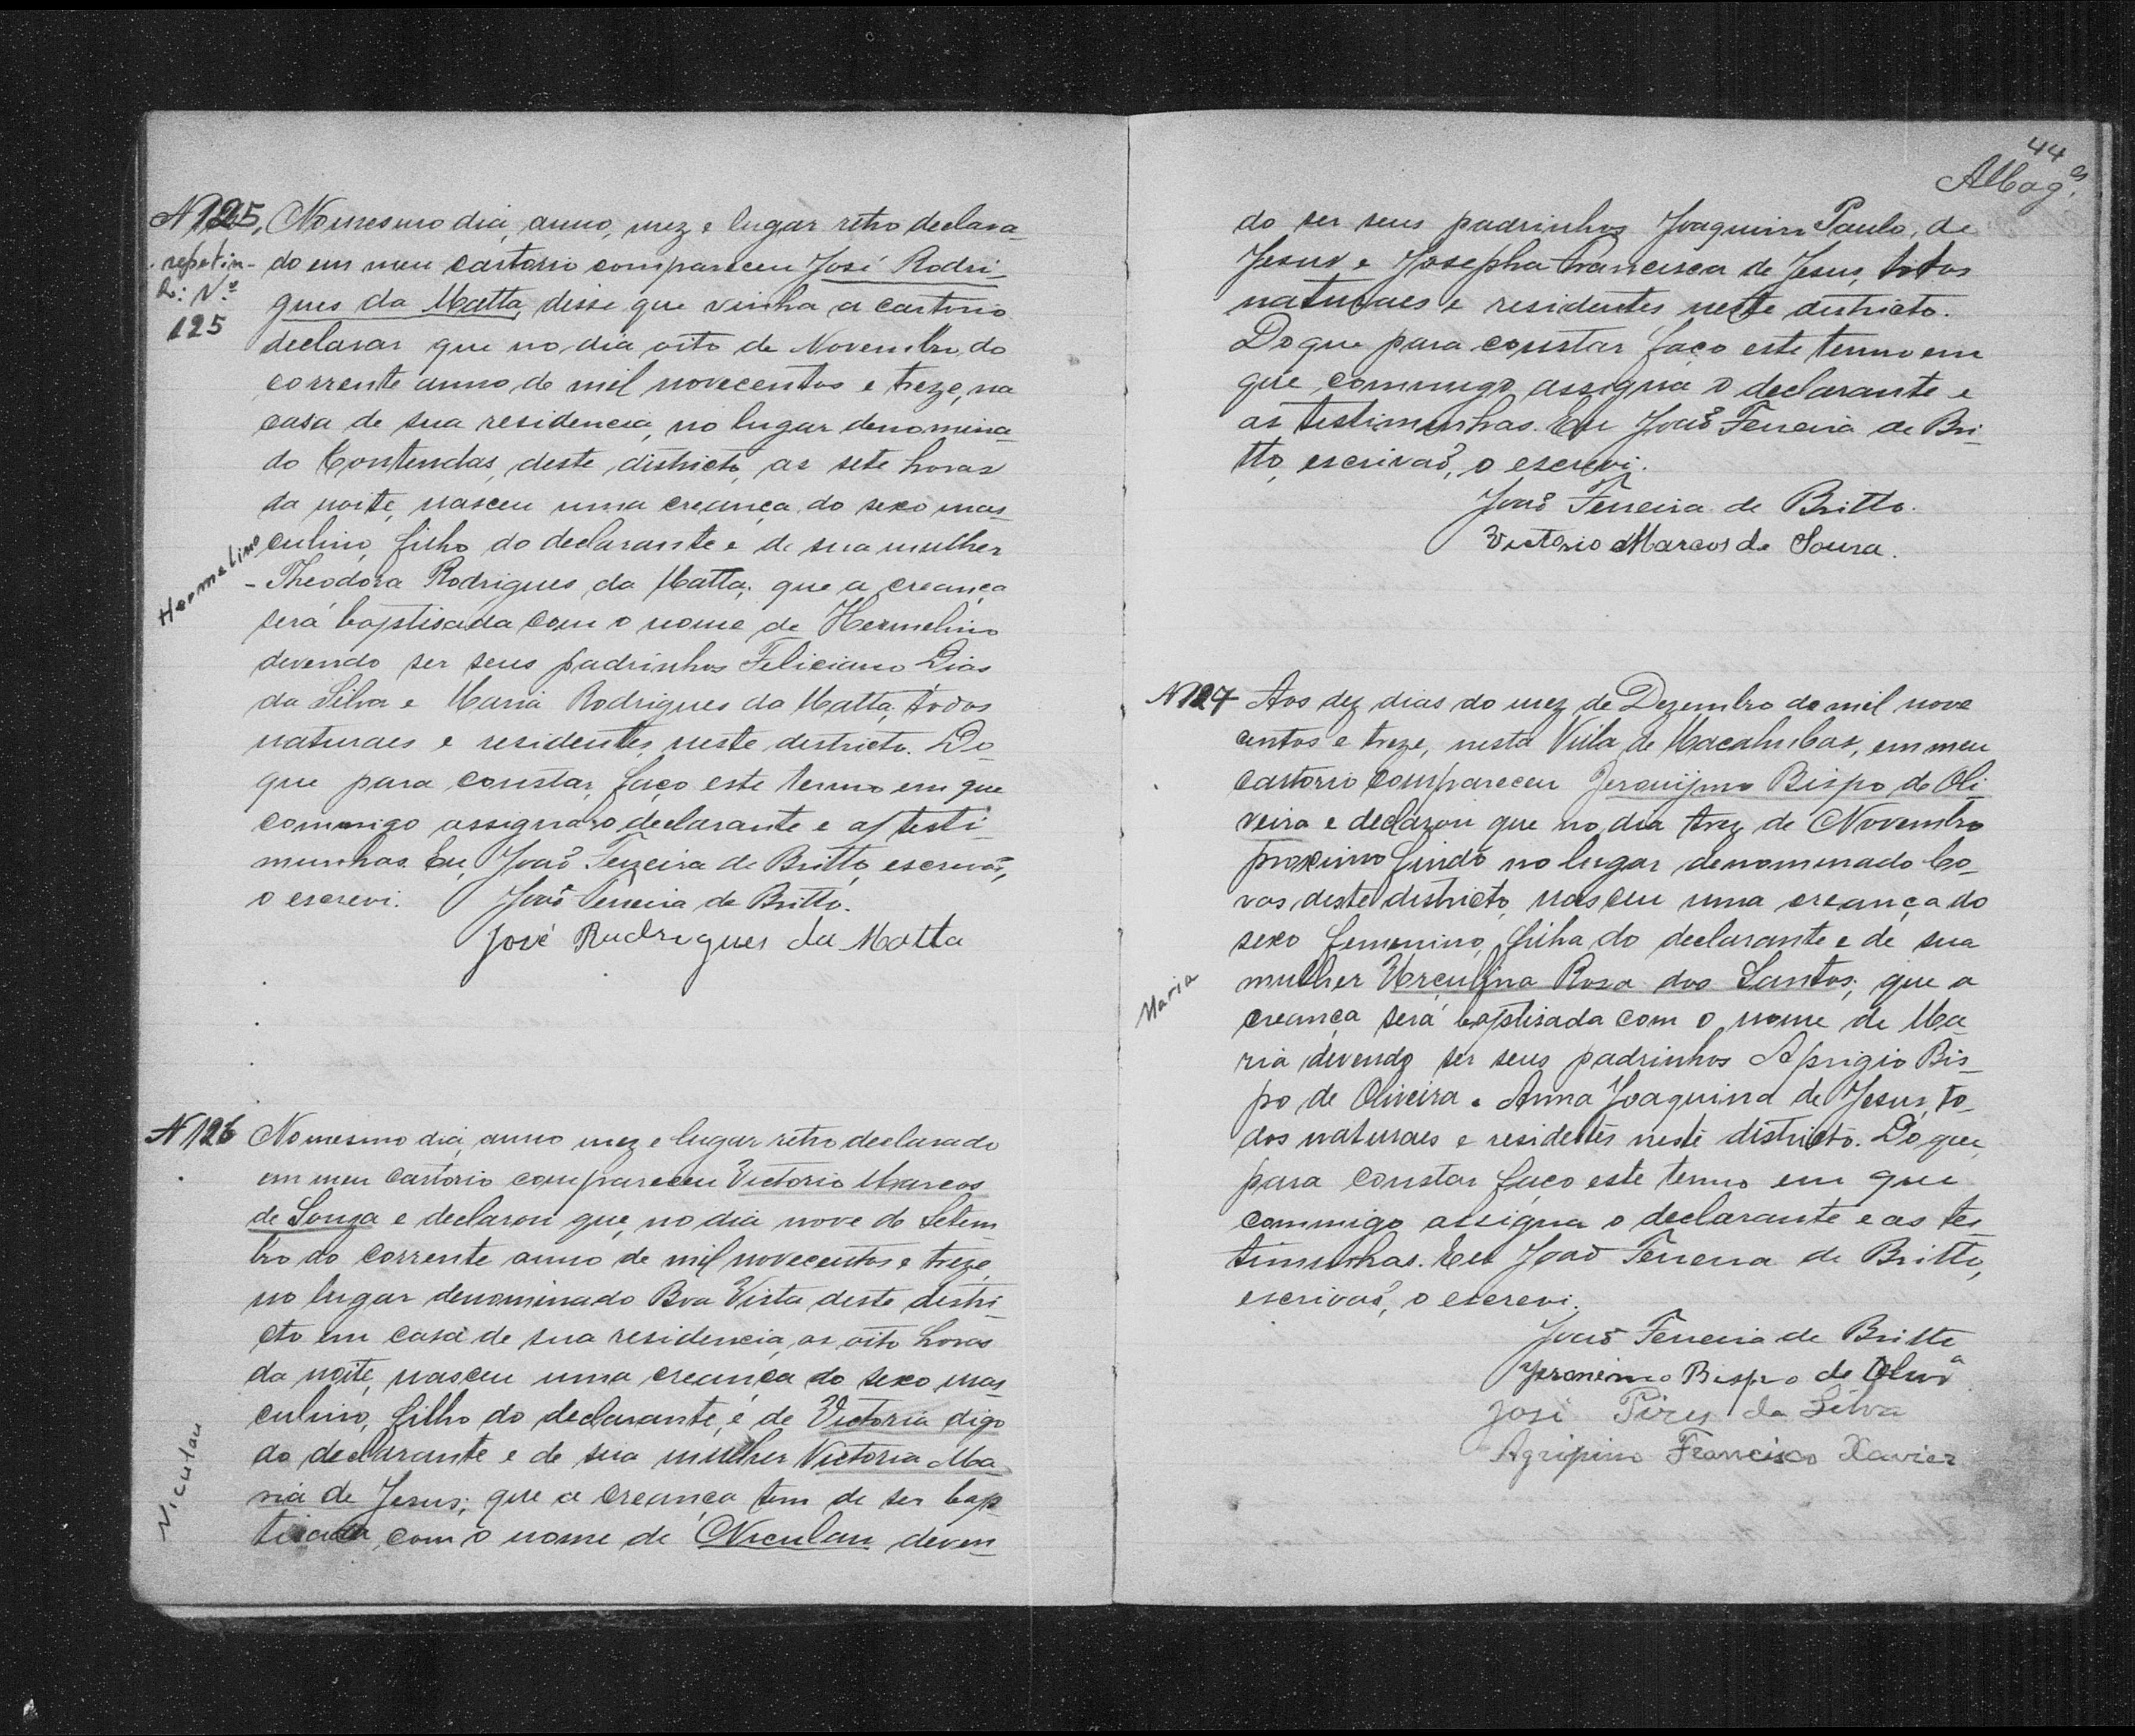 N 125, No mesmo dia, anno, mez e lugar retro declara-
repetin- do em meu cartorio compareceu José Rodri-
d: Nº gues da Matta, disse que vinha a cartorio
125 declarar que no dia oito de Novembro do
corrente anno de mil novecentos e treze, na
casa de sua residencia, no lugar denomina-
do Contendas, deste districto, as sete horas
da noite, nasceu uma creança do sexo mas-
culino, filho do declarante e de sua mulher
Hermelino
- Theodora Rodrigues da Matta; que a creança
será baptisada com o nome de Hermelino
devendo ser seus padrinhos Feliciano Dias
da Silva e Maria Rodrigues da Matta, todos
naturaes e residentes neste districto. Do
que para constar, faço este termo em que
commigo assigna o declarante e as testi-
munhas. Eu, João Ferreira de Britto, escrivão,
o escrevi. João Ferreira de Britto.
José Rudrigues da Matta
N 126 No mesmo dia, anno mez e lugar retro declarado
em meu cartorio compareceu Victorio Marcos
de Souza e declarou que, no dia nove de Setem
bro do corrente anno de mil novecentos e treze,
no lugar denominado Boa Vista deste distri-
cto em casa de sua residencia, as oito horas
da noite, nasceu uma creança do sexo mas-
culino, filho do declarante, e de Victoria digo
do declarante e de sua mulher Victoria Ma-
ria de Jesus; que a creança tem de ser bap
tisada, com o nome de Niculau deven-
Niculau
44
do ser seus padrinhos Joaquim Paulo, de
Jesus e Josepha Francisca de Jesus, todos
naturaes e residentes neste districto.
Do que para constar faço este termo em
que commigo assigna o declarante e
as testimunhas. Eu João Ferreira de Bri-
tto, escrivão, o escrevi.
João Ferreira de Britto.
Victorio Marcos de Sousa.
N 127 Aos dez dias do mez de Dezembro de mil nove
centos e treze, nesta Villa de Macahubas, em meu
cartorio compareceu Jeronijmo Bispo de Oli
veira e declarou que no dia trez de Novembro
proximo findo no lugar denominado Co-
vas deste districto, nasceu uma creança do
sexo femenino, filha do declarante e de sua
mulher Herculina Rosa dos Santos; que a
Maria
creança será baptisada com o nome de Ma-
ria devendo ser seus padrinhos Aprigio Bis-
po de Oliveira e Anna Joaquina de Jesus, to-
dos naturaes e residentes neste districto. Do que,
para constar faço este termo em que
commigo assigna o declarante e as tes
timunhas. Eu João Ferreira de Britto,
escrivão, o escrevi.
João Ferreira de Britto
Jeronimo Bispo de Olivrª
José Pires da Silva
Agripino Francisco Xavier